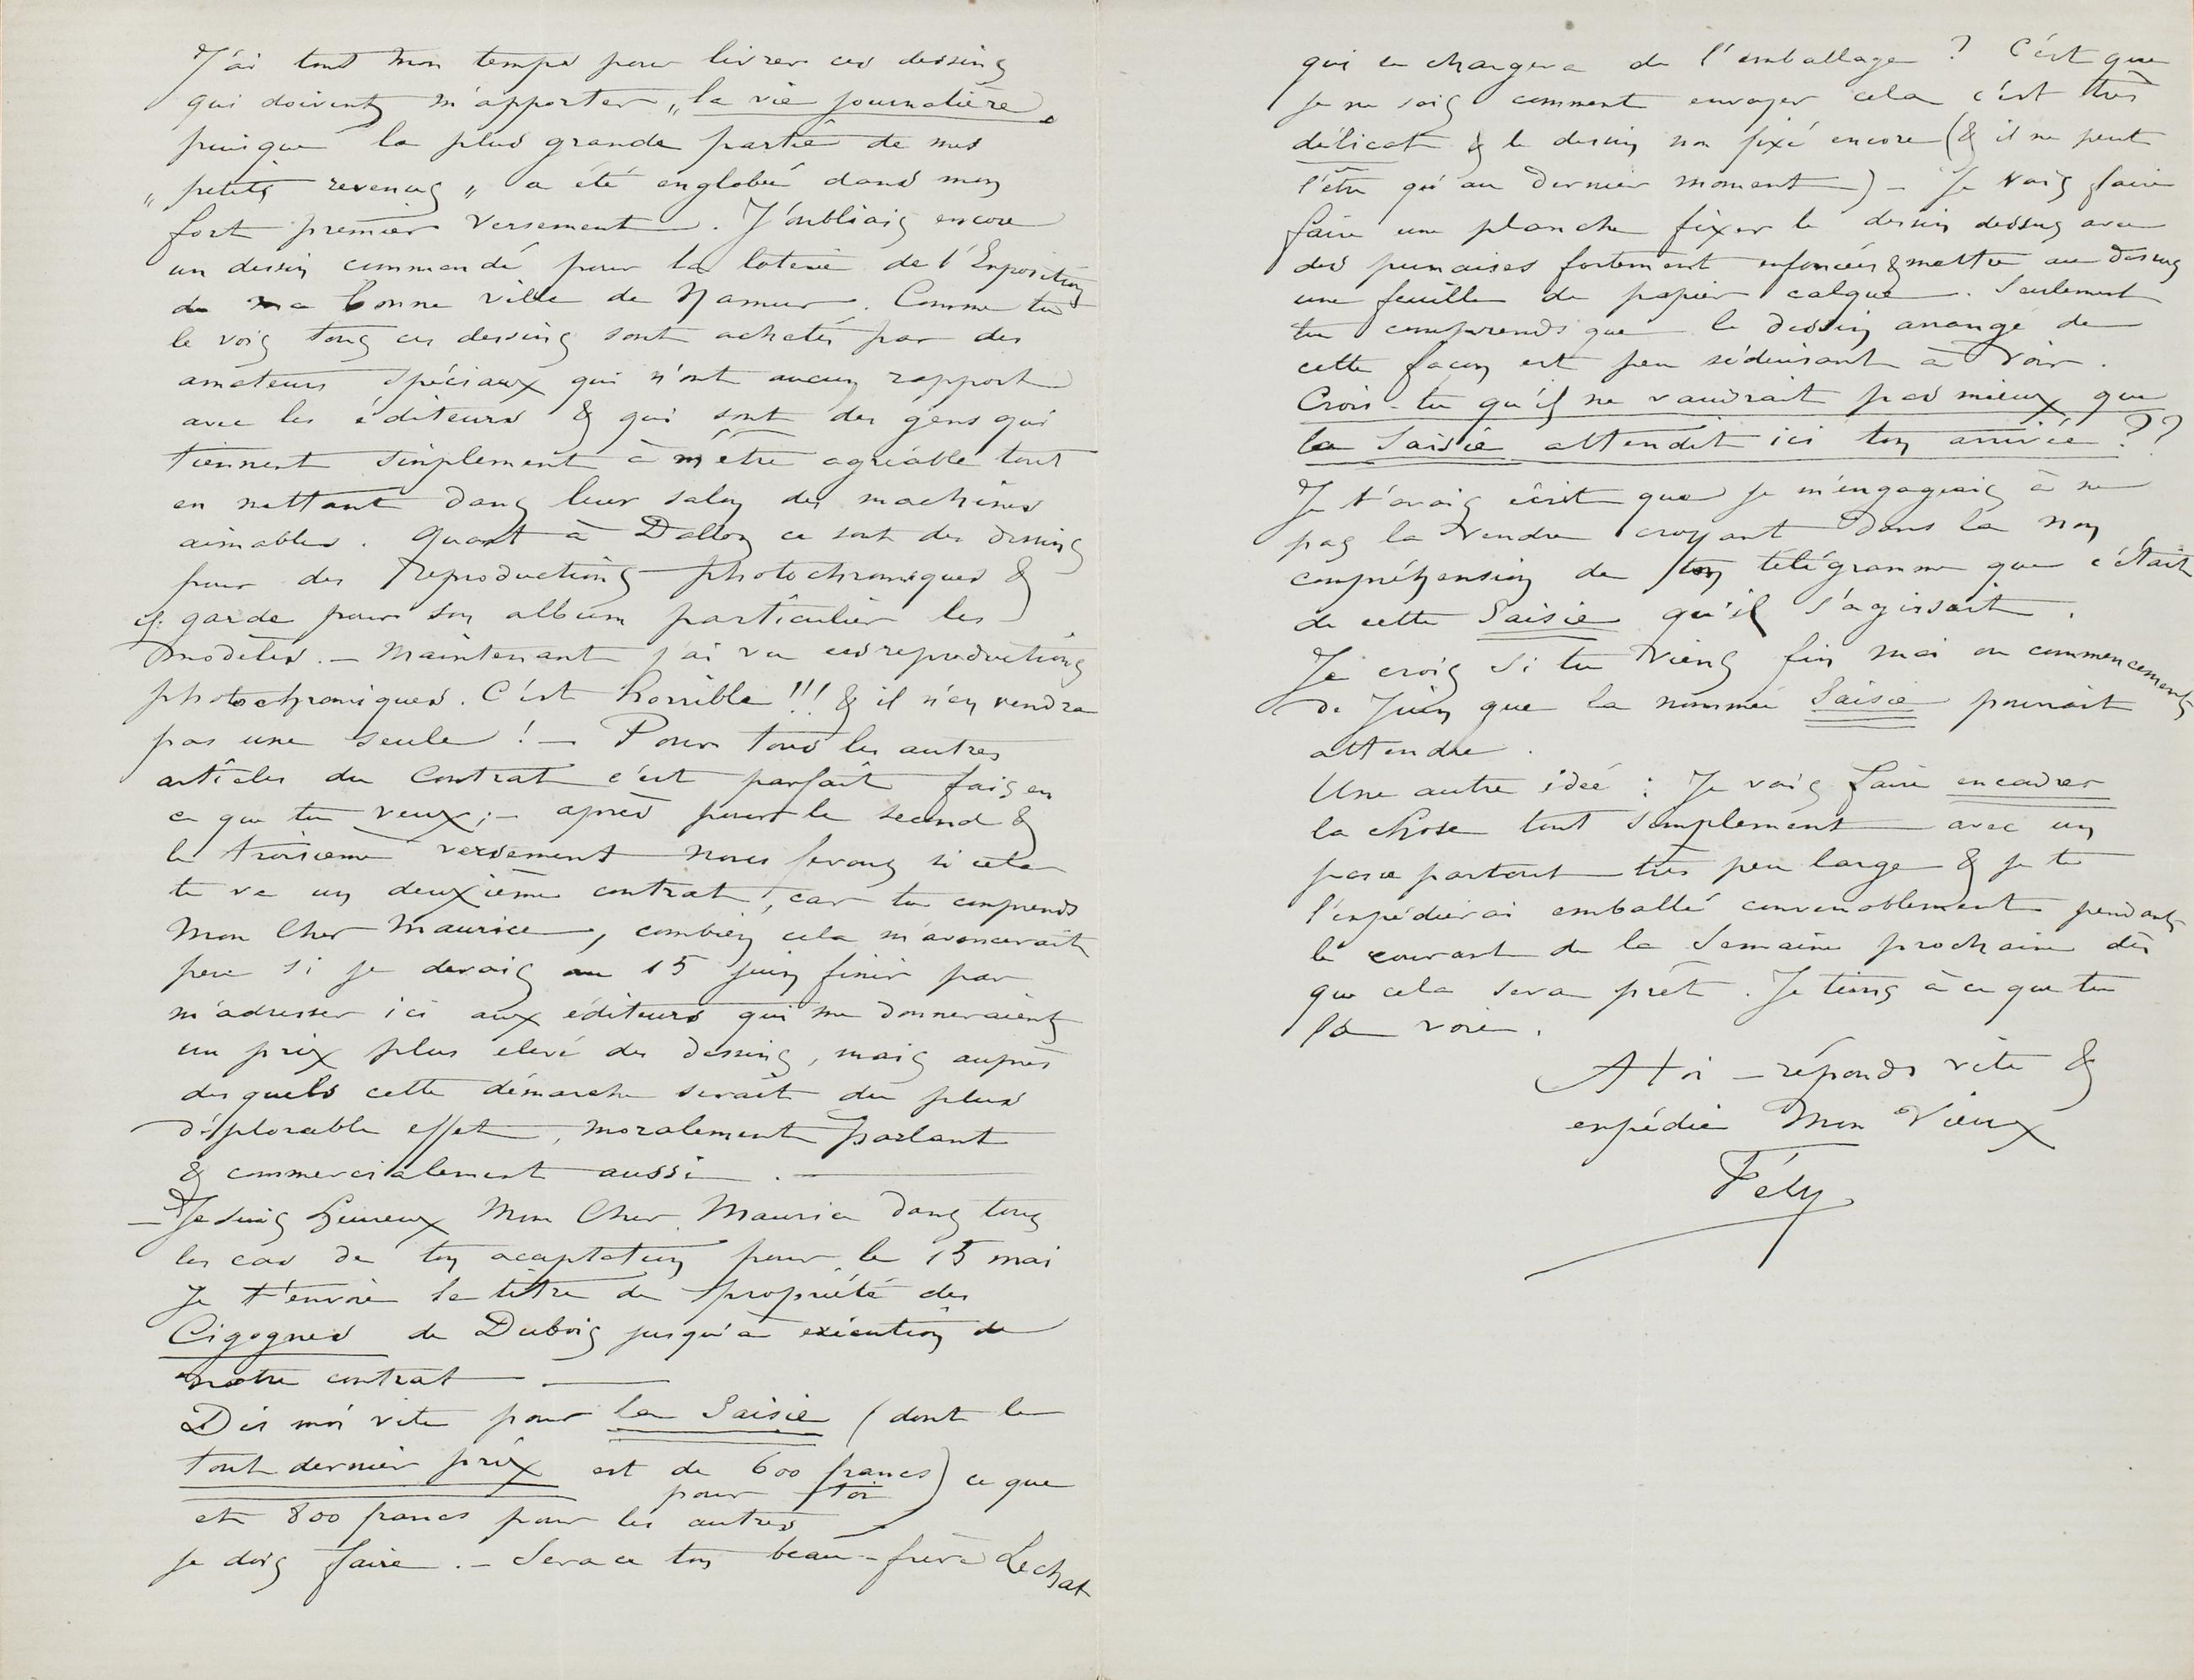 J'ai tout mon temps pour livrer ces dessins
qui doivent m'apporter „la vie journalière„
puisque la plus grande partie de mes
„petits revenus„ a été englobée dans mon
fort premier versement. J'oubliais encore
un dessin commandé pour la loterie de l'Exposition
de ma bonne ville de Namur. Comme tu
le vois tous ces dessins sont achetés par des
amateurs spéciaux qui n'ont aucun rapport
avec les éditeurs & qui sont des gens qui
tiennent simplement à m'être agréable tout
en mettant dans leur salon des machines
aimables. Quant à Dalloz ce sont des dessins
pour des reproductions photochromiques &
il garde pour son album particulier les
modèles. — Maintenant j'ai vu ces reproductions
photochromiques. C'est horrible !!! & il n'en vendra
pas une seule ! — Pour tous les autres
articles du Contrat c'est parfait fais en
ce que tu veux ; — après pour le second &
le troisième versement nous ferons si cela
te va un deuxième contrat, car tu comprends
Mon Cher Maurice, combien cela m'avancerait
peu si je devais au 15 juin finir par
m'adresser ici aux éditeurs qui me donneraient
un prix plus élevé des dessins, mais auprès
desquels cette démarche serait du plus
déplorable effet, moralement parlant
& commercialement aussi. —
— Je suis heureux Mon Cher Maurice dans tous
les cas de ton acceptation pour le 15 mai
Je t'envoie le titre de propriété des
Cigognes de Dubois jusqu'à exécution de
notre contrat —
Dis moi vite pour la Saisie (dont le
tout dernier prix est de 600 francs) ce que
pour toi
et 800 francs pour les autres
je dois faire. — Sera ce ton beau-frère Lechat
qui se chargera de l'emballage ? C'est que
je ne sais comment envoyer cela c'est très
délicat & le dessin non fixé encore (& il ne peut
l'être qu'au dernier moment) — Je vais faire
faire une planche fixer le dessin dessus avec
des punaises fortement enfoncées & mettre au dessus
une feuille de papier calque. Seulement
tu comprends que le dessin arrangé de
cette façon est peu séduisant à voir.
Crois-tu qu'il ne vaudrait pas mieux que
la Saisie attendit ici ton arrivée ??
Je t'avais écrit que je m'engageais à ne
pas la vendre croyant dans la non
compréhension de ton télégramme que c'était
de cette Saisie qu'il s'agissait.
Je crois si tu viens fin mai ou commencement
de Juin que la nommée Saisie pourrait
attendre.
Une autre idée : Je vais faire encadrer
la chose tout simplement avec un
passe partout très peu large & je te
l'expédierai emballé convenablement pendant
le courant de la semaine prochaine dès
que cela sera prêt. Je tiens à ce que tu
la voie.
A toi — réponds vite &
expédie Mon Vieux
Fély